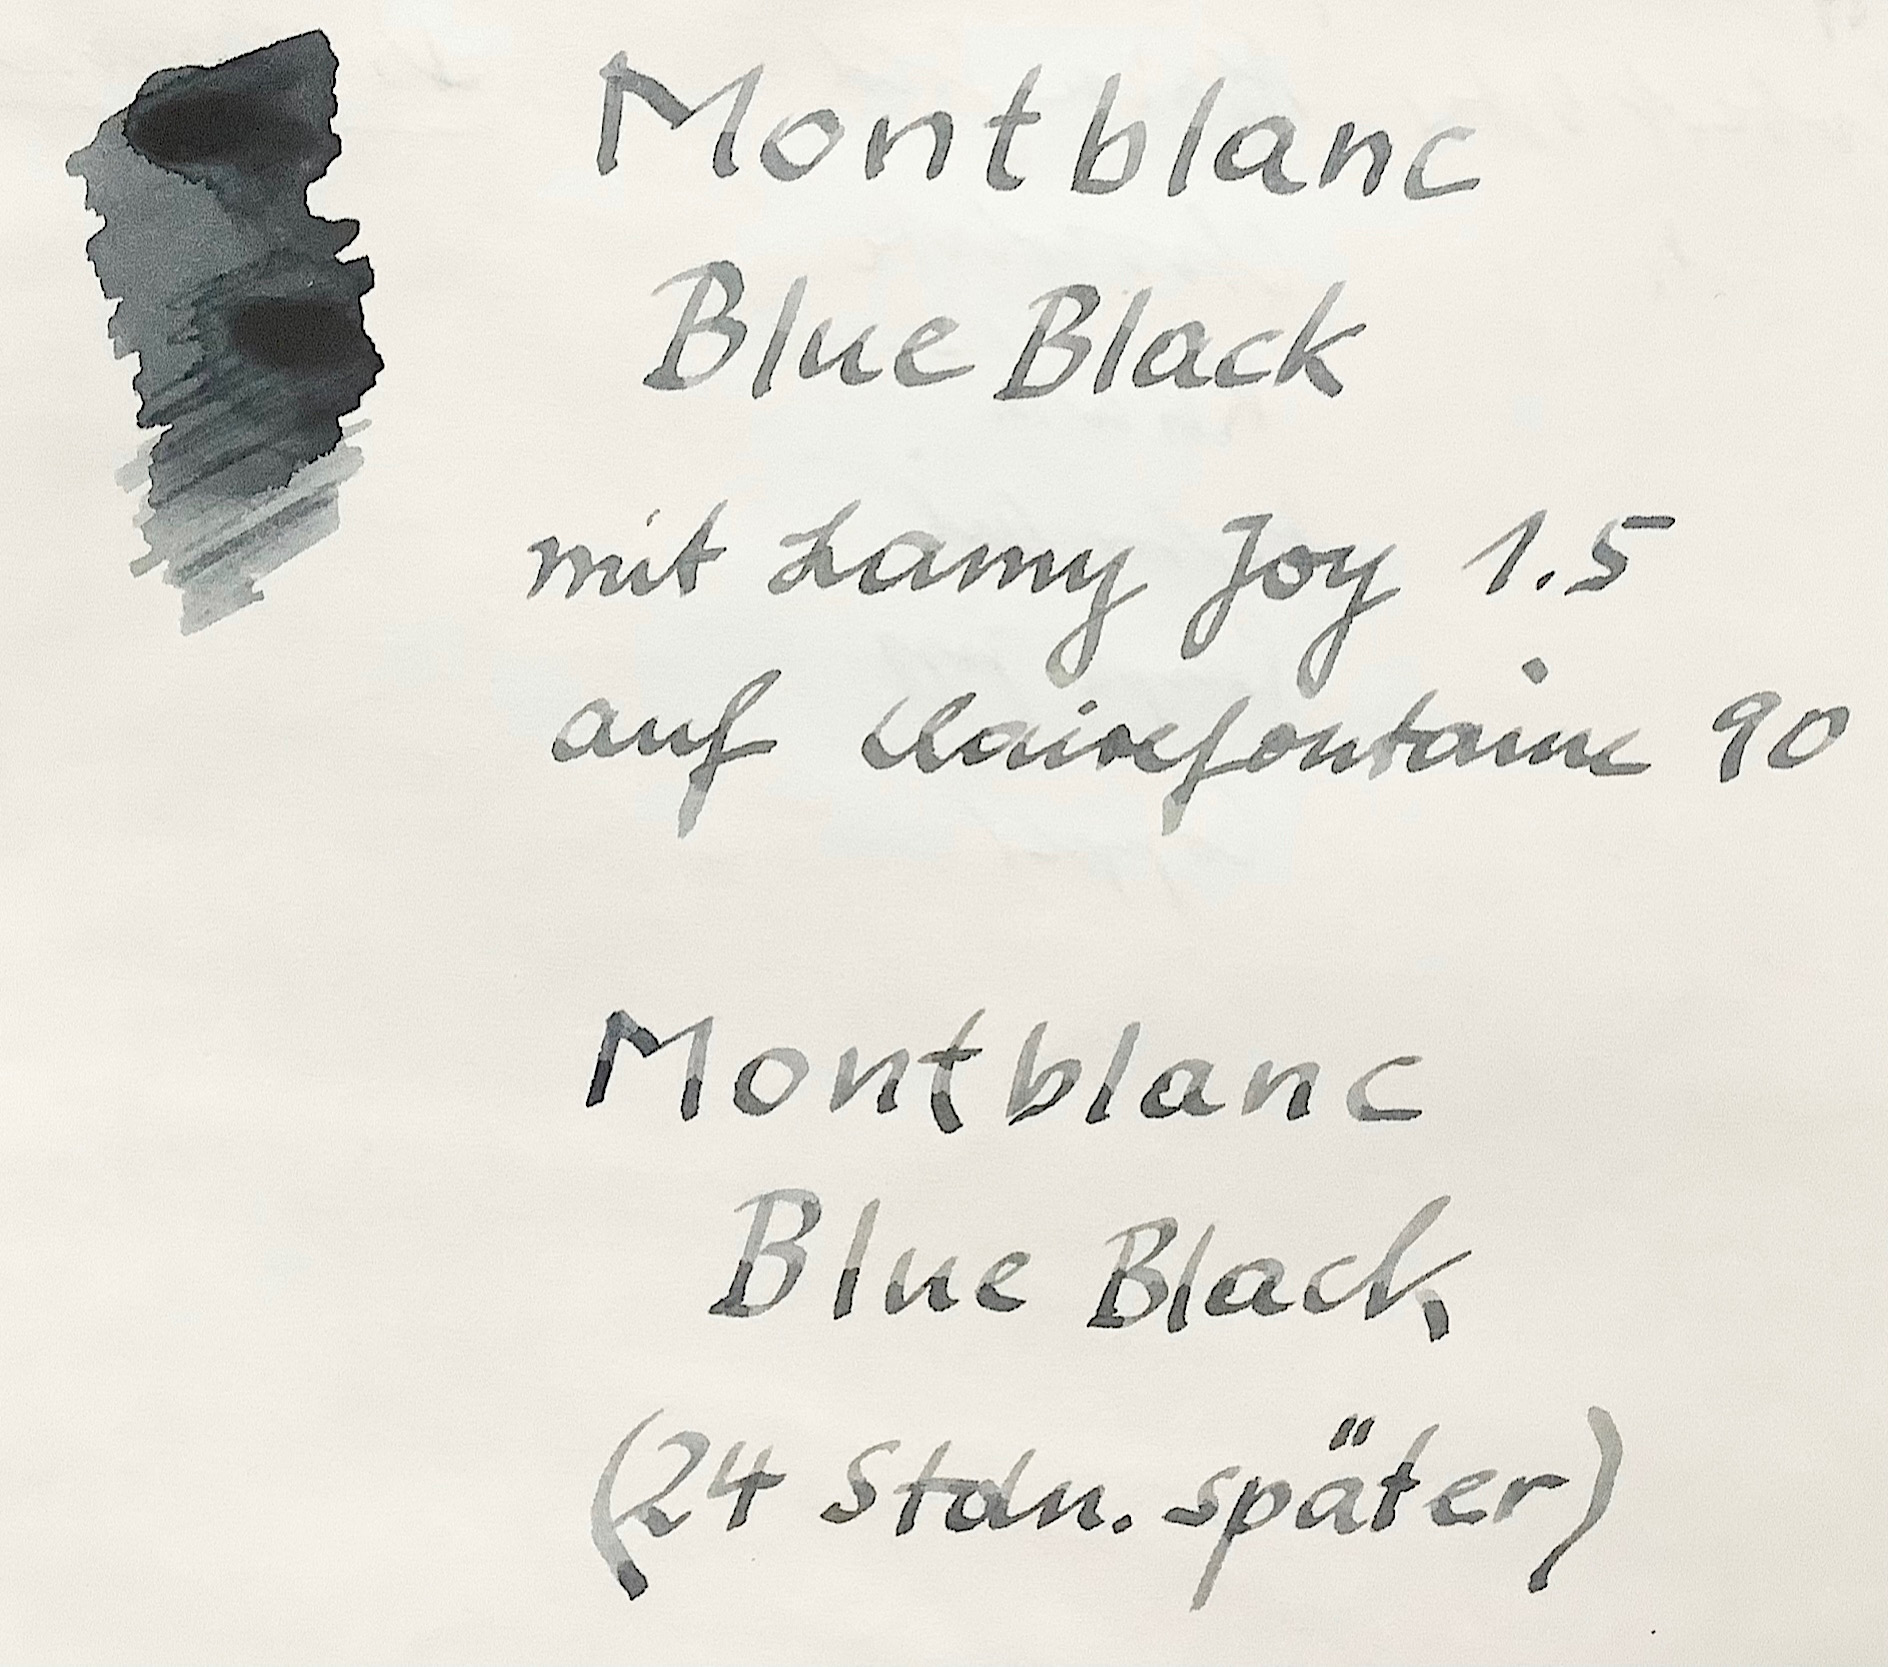 Montblanc
Blue Black
mit Lamy Joy 1.5
auf Clairefontaine 90
Montblanc
Blue Black
(24 Stdn. später)